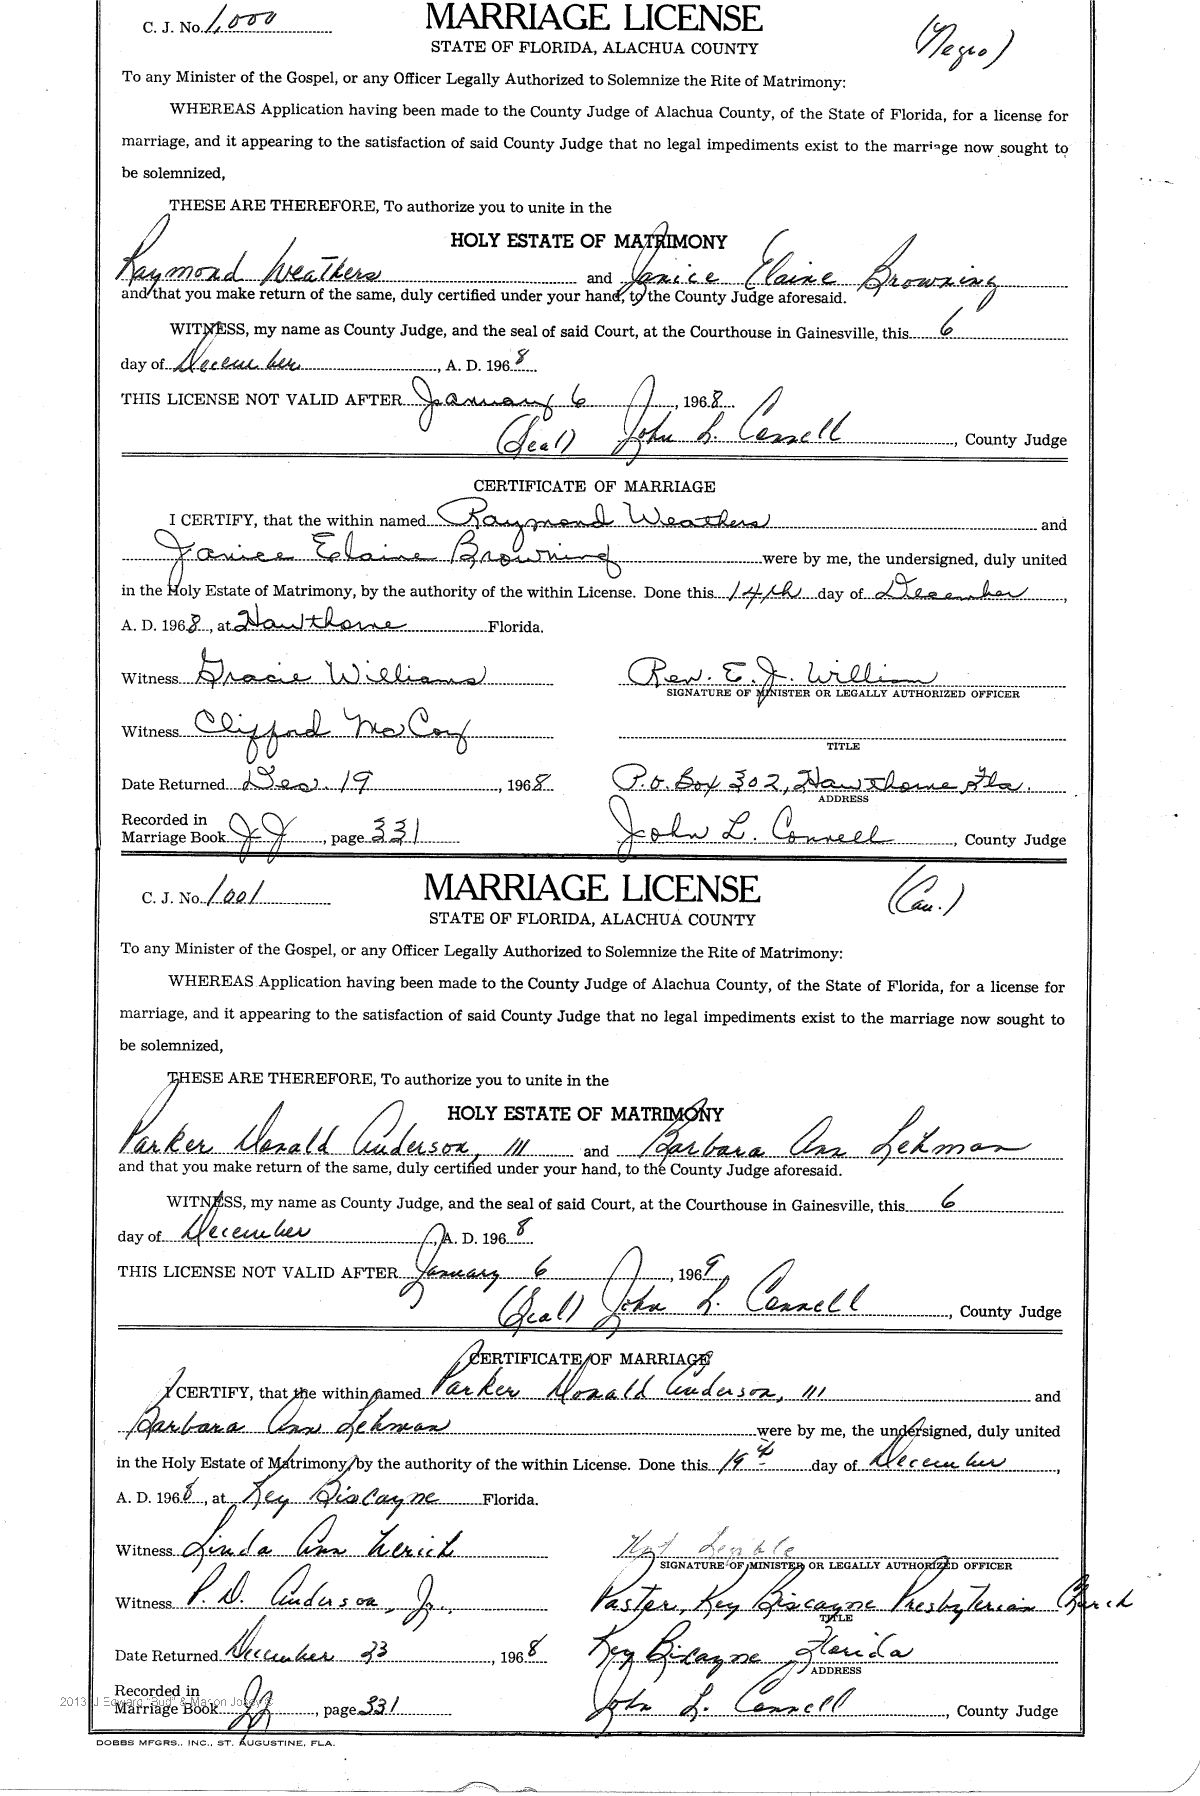 C. J. No. 1,000
MARRIAGE LICENSE
(Negro)
STATE OF FLORIDA, ALACHUA COUNTY
To any Minister of the Gospel, or any Officer Legally Authorized to Solemnize the Rite of Matrimony:
WHEREAS Application having been made to the County Judge of Alachua County, of the State of Florida, for a license for
marriage, and it appearing to the satisfaction of said County Judge that no legal impediments exist to the marriage now sought to
be solemnized,
THESE ARE THEREFORE, To authorize you to unite in the
HOLY ESTATE OF MATRIMONY
Raymond Weathers and Janice Elaine Browning
and that you make return of the same, duly certified under your hand, to the County Judge aforesaid.
WITNESS, my name as County Judge, and the seal of said Court, at the Courthouse in Gainesville, this 6
day of December, A. D. 1968
THIS LICENSE NOT VALID AFTER January 6, 1968
(Seal) John L. Connell, County Judge
CERTIFICATE OF MARRIAGE
I CERTIFY, that the within named Raymond Weathers and
Janice Elaine Browning were by me, the undersigned, duly united
in the Holy Estate of Matrimony, by the authority of the within License. Done this 14th day of December,
A. D. 1968, at Hawthorne Florida.
Witness Gracie Williams Rev. E. J. William
SIGNATURE OF MINISTER OR LEGALLY AUTHORIZED OFFICER
Witness Clifford McCoy
TITLE
Date Returned Dec. 19, 1968 P.O. Box 302, Hawthorne Fla.
ADDRESS
Recorded in
Marriage Book JJ, page 331 John L. Connell, County Judge
C. J. No. 1001
MARRIAGE LICENSE
(Cau.)
STATE OF FLORIDA, ALACHUA COUNTY
To any Minister of the Gospel, or any Officer Legally Authorized to Solemnize the Rite of Matrimony:
WHEREAS Application having been made to the County Judge of Alachua County, of the State of Florida, for a license for
marriage, and it appearing to the satisfaction of said County Judge that no legal impediments exist to the marriage now sought to
be solemnized,
THESE ARE THEREFORE, To authorize you to unite in the
HOLY ESTATE OF MATRIMONY
Parker Donald Anderson, III and Barbara Ann Lehman
and that you make return of the same, duly certified under your hand, to the County Judge aforesaid.
WITNESS, my name as County Judge, and the seal of said Court, at the Courthouse in Gainesville, this 6
day of December, A. D. 1968
THIS LICENSE NOT VALID AFTER January 6, 1969
(Seal) John L. Connell, County Judge
CERTIFICATE OF MARRIAGE
I CERTIFY, that the within named Parker Donald Anderson, III and
Barbara Ann Lehman were by me, the undersigned, duly united
in the Holy Estate of Matrimony, by the authority of the within License. Done this 19th day of December,
A. D. 1968, at Key Biscayne Florida.
Witness Linda Ann Not Legible
SIGNATURE OF MINISTER OR LEGALLY AUTHORIZED OFFICER
Witness P. D. Anderson, Jr. Pastor, Key Biscayne Presbyterian Church
TITLE
Date Returned December 23, 1968 Key Biscayne Florida
ADDRESS
Recorded in
2013 J Edward "Bud" & Mason
Marriage Book JJ, page 331 John L. Connell, County Judge
DOBBS MFGRS., INC., ST. AUGUSTINE, FLA.